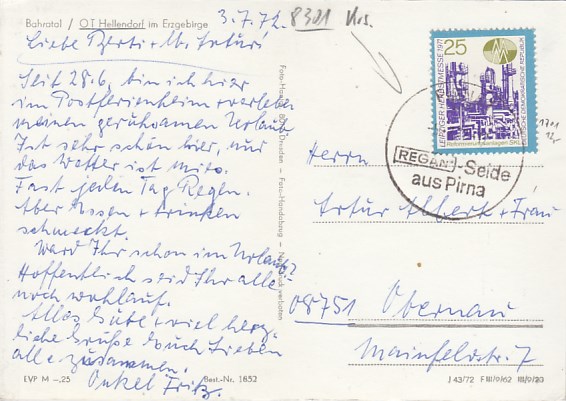 Bahratal / OT Hellendorf im Erzgebirge
3.7.72
8301 Krs.
Liebe Berti + Artur!
Seit 28.6. bin ich hier
im Postferienheim + verlebe
meinen geruhsamen Urlaub
Ist sehr schön hier, nur
das Wetter ist mies.
Fast jeden Tag Regen.
Aber Essen + trinken
schmeckt.
Ward Ihr schon im Urlaub?
Hoffentlich seid Ihr alle
noch wohlauf.
Alles Gute + viel herz-
liche Grüße Euch Lieben
alle zusammen.
Onkel Fritz.
EVP M –,25 Best.-Nr. 1852
25
LEIPZIGER HERBSTMESSE 1971
DEUTSCHE DEMOKRATISCHE REPUBLIK
Reformierungsanlagen SKL
REGAN -Seide
aus Pirna
Herrn
Artur Albert + Frau
08751 Obernau
Mainfeldstr. 7
J 43/72 F III/9/62 III/9/20